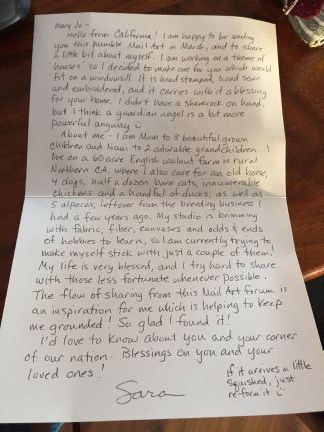 Mary Jo -
Hello from California! I am happy to be sending
you this humble Mail Art in March, and to share
a little bit about myself. I am working on a theme of
"houses" so I decided to make one for you which would
fit on a windowsill. It is hand stamped, hand sewn
and embroidered, and it carries with it a blessing
for your home. I didn't have a shamrock on hand,
but I think a guardian angel is a bit more
powerful anyway ☺
About me - I am Mom to 3 beautiful grown
children and Nani to 2 adorable grandchildren. I
live on a 60 acre English walnut farm in rural
Northern CA. where I also care for an old horse,
4 dogs, half a dozen barn cats, innumerable
chickens and a handful of ducks, as well as
5 alpacas, leftover from the breeding business I
had a few years ago. My studio is brimming
with fabric, fiber, canvases and odds & ends
of hobbies to learn, so I am currently trying to
make myself stick with just a couple of them!
My life is very blessed, and I try hard to share
with those less fortunate whenever possible.
The flow of sharing from this Mail Art forum is
an inspiration for me which is helping to keep
me grounded! So glad I found it!
I'd love to know about you and your corner
of our nation. Blessings on you and your
loved ones!
Sara
If it arrives a little
squished, just
re-form it ☺